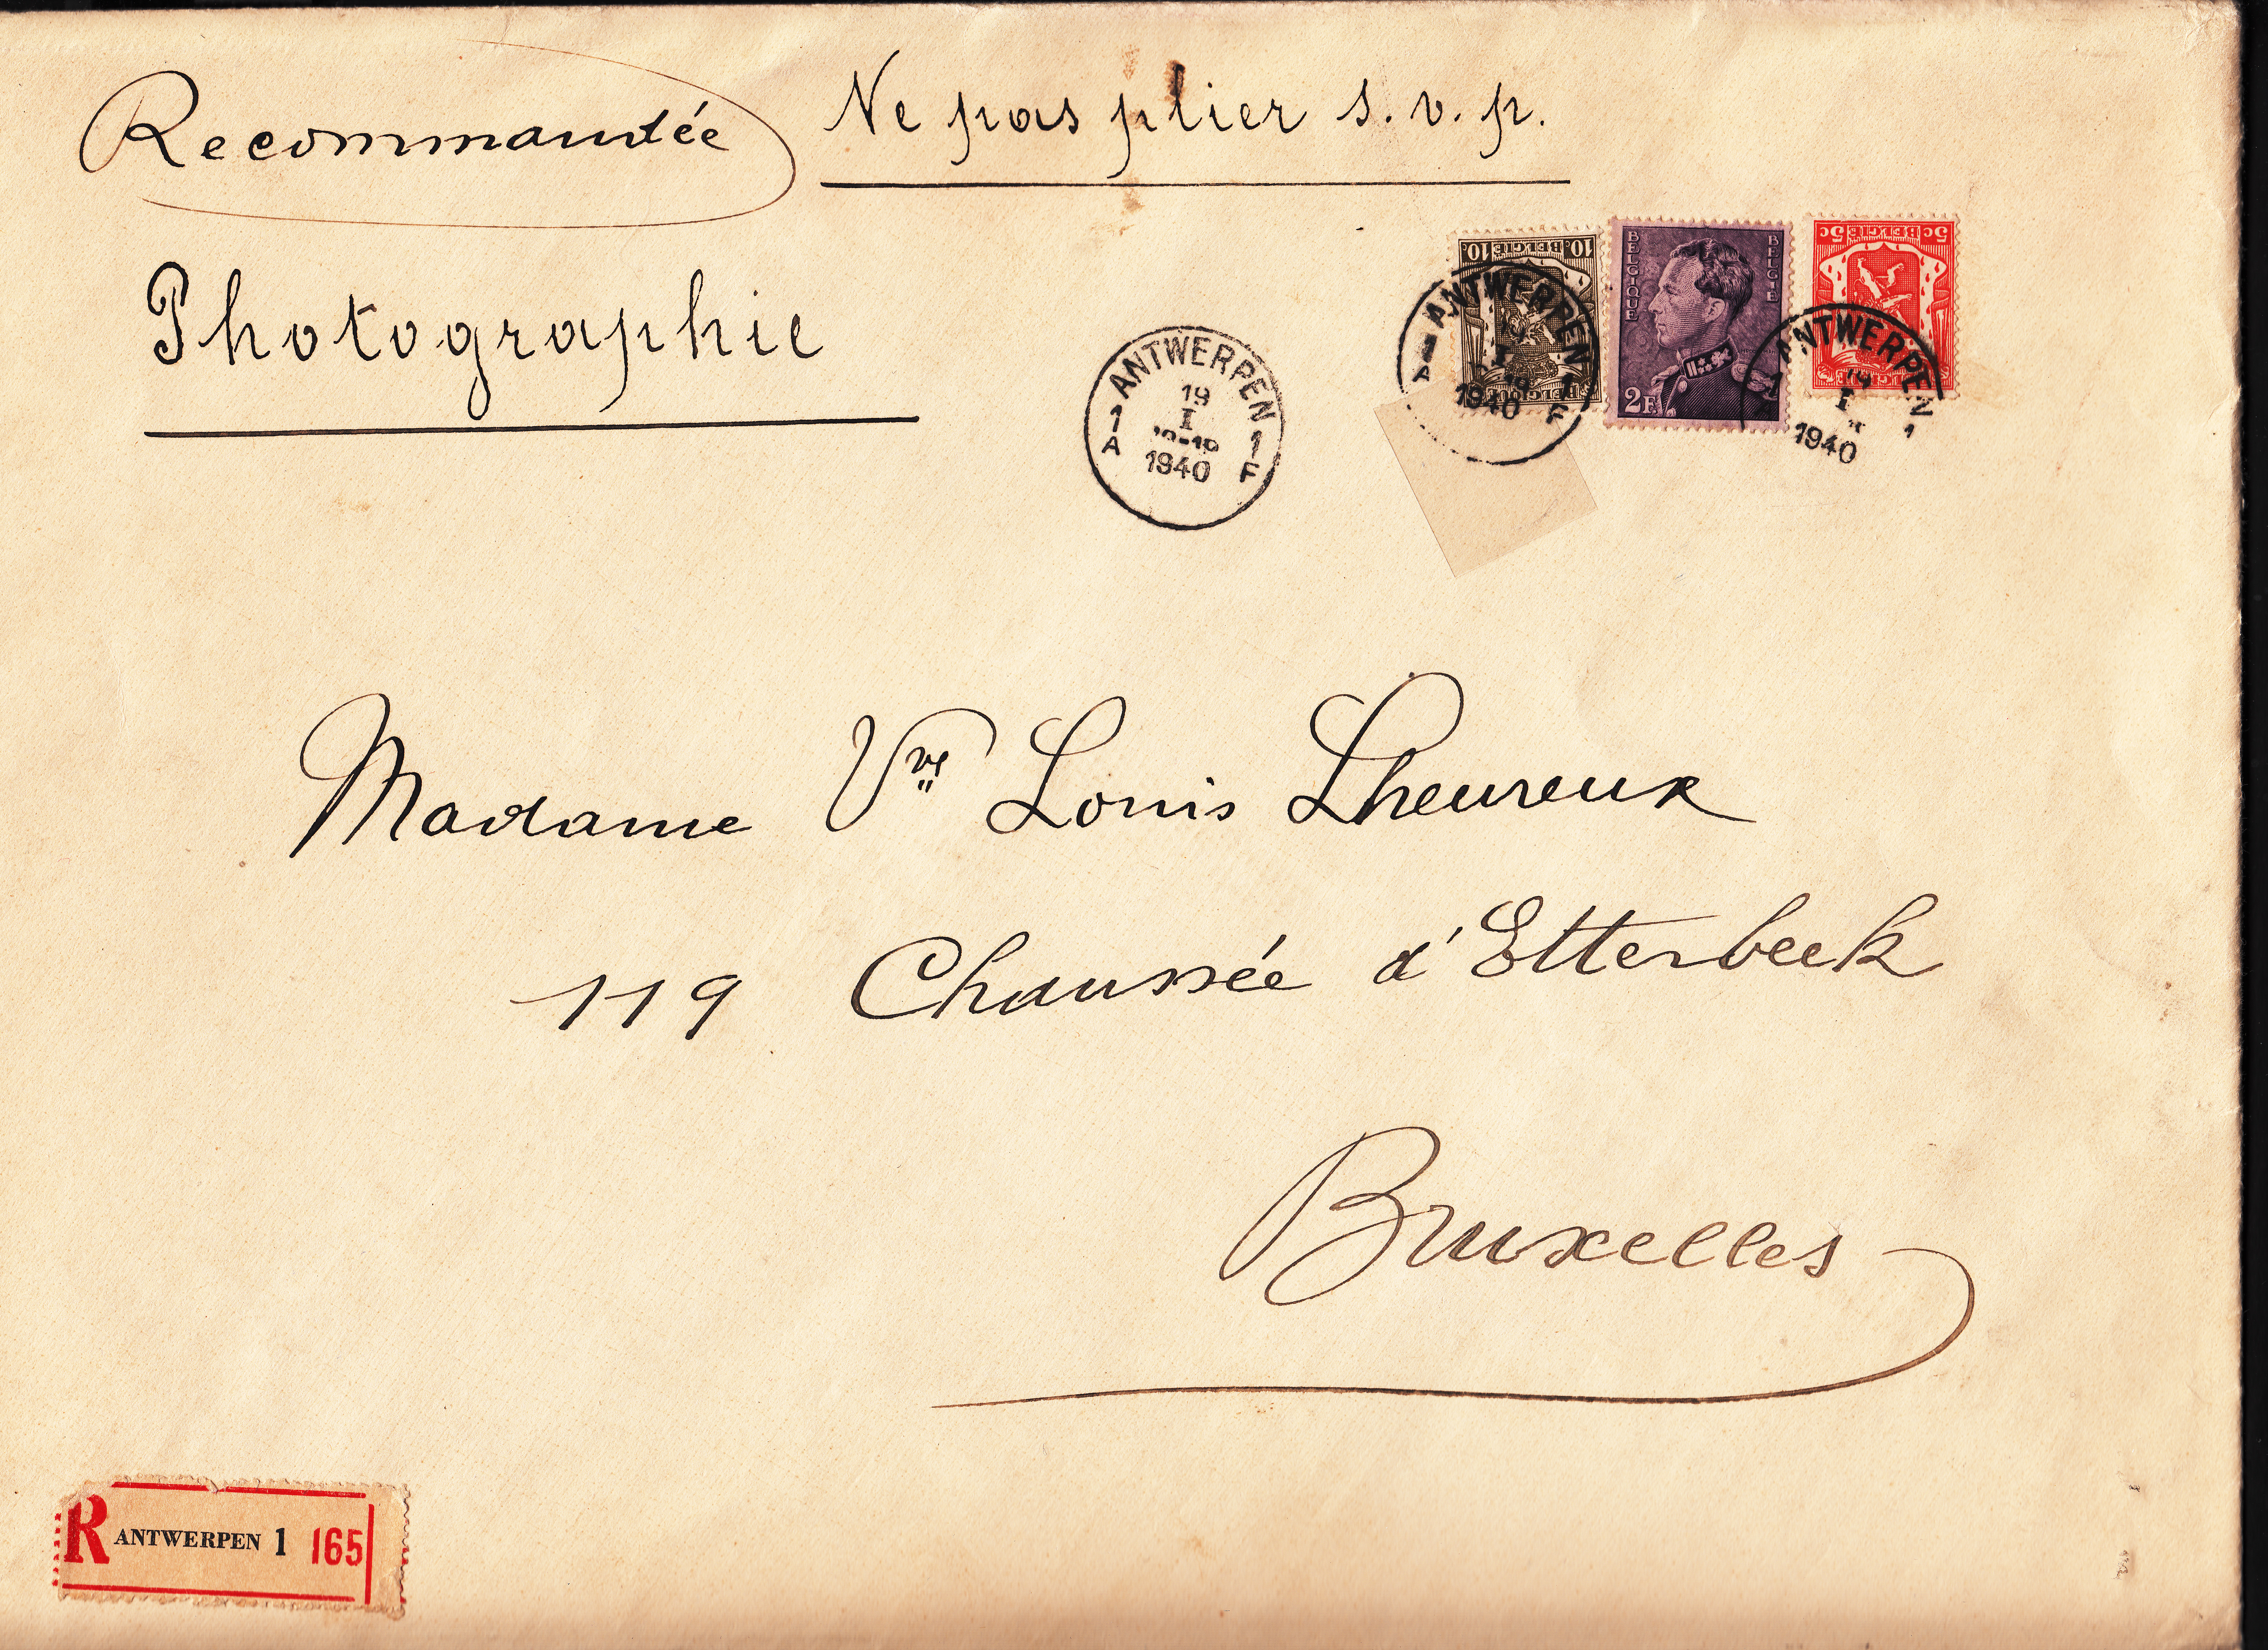 Recommandée
Ne pas plier s. v. p.
Photographie
10. BELGIE 10.
BELGIQUE
BELGIE
2F
5c BELGIE 5c
ANTWERPEN
19
I
1940
1 A
1 F
ANTWERPEN
19
I
1940
A
1 F
ANTWERPEN
19
I
1940
1
1
Madame Vve Louis Lheureux
119 Chaussée d'Etterbeek
Bruxelles
R ANTWERPEN 1 165